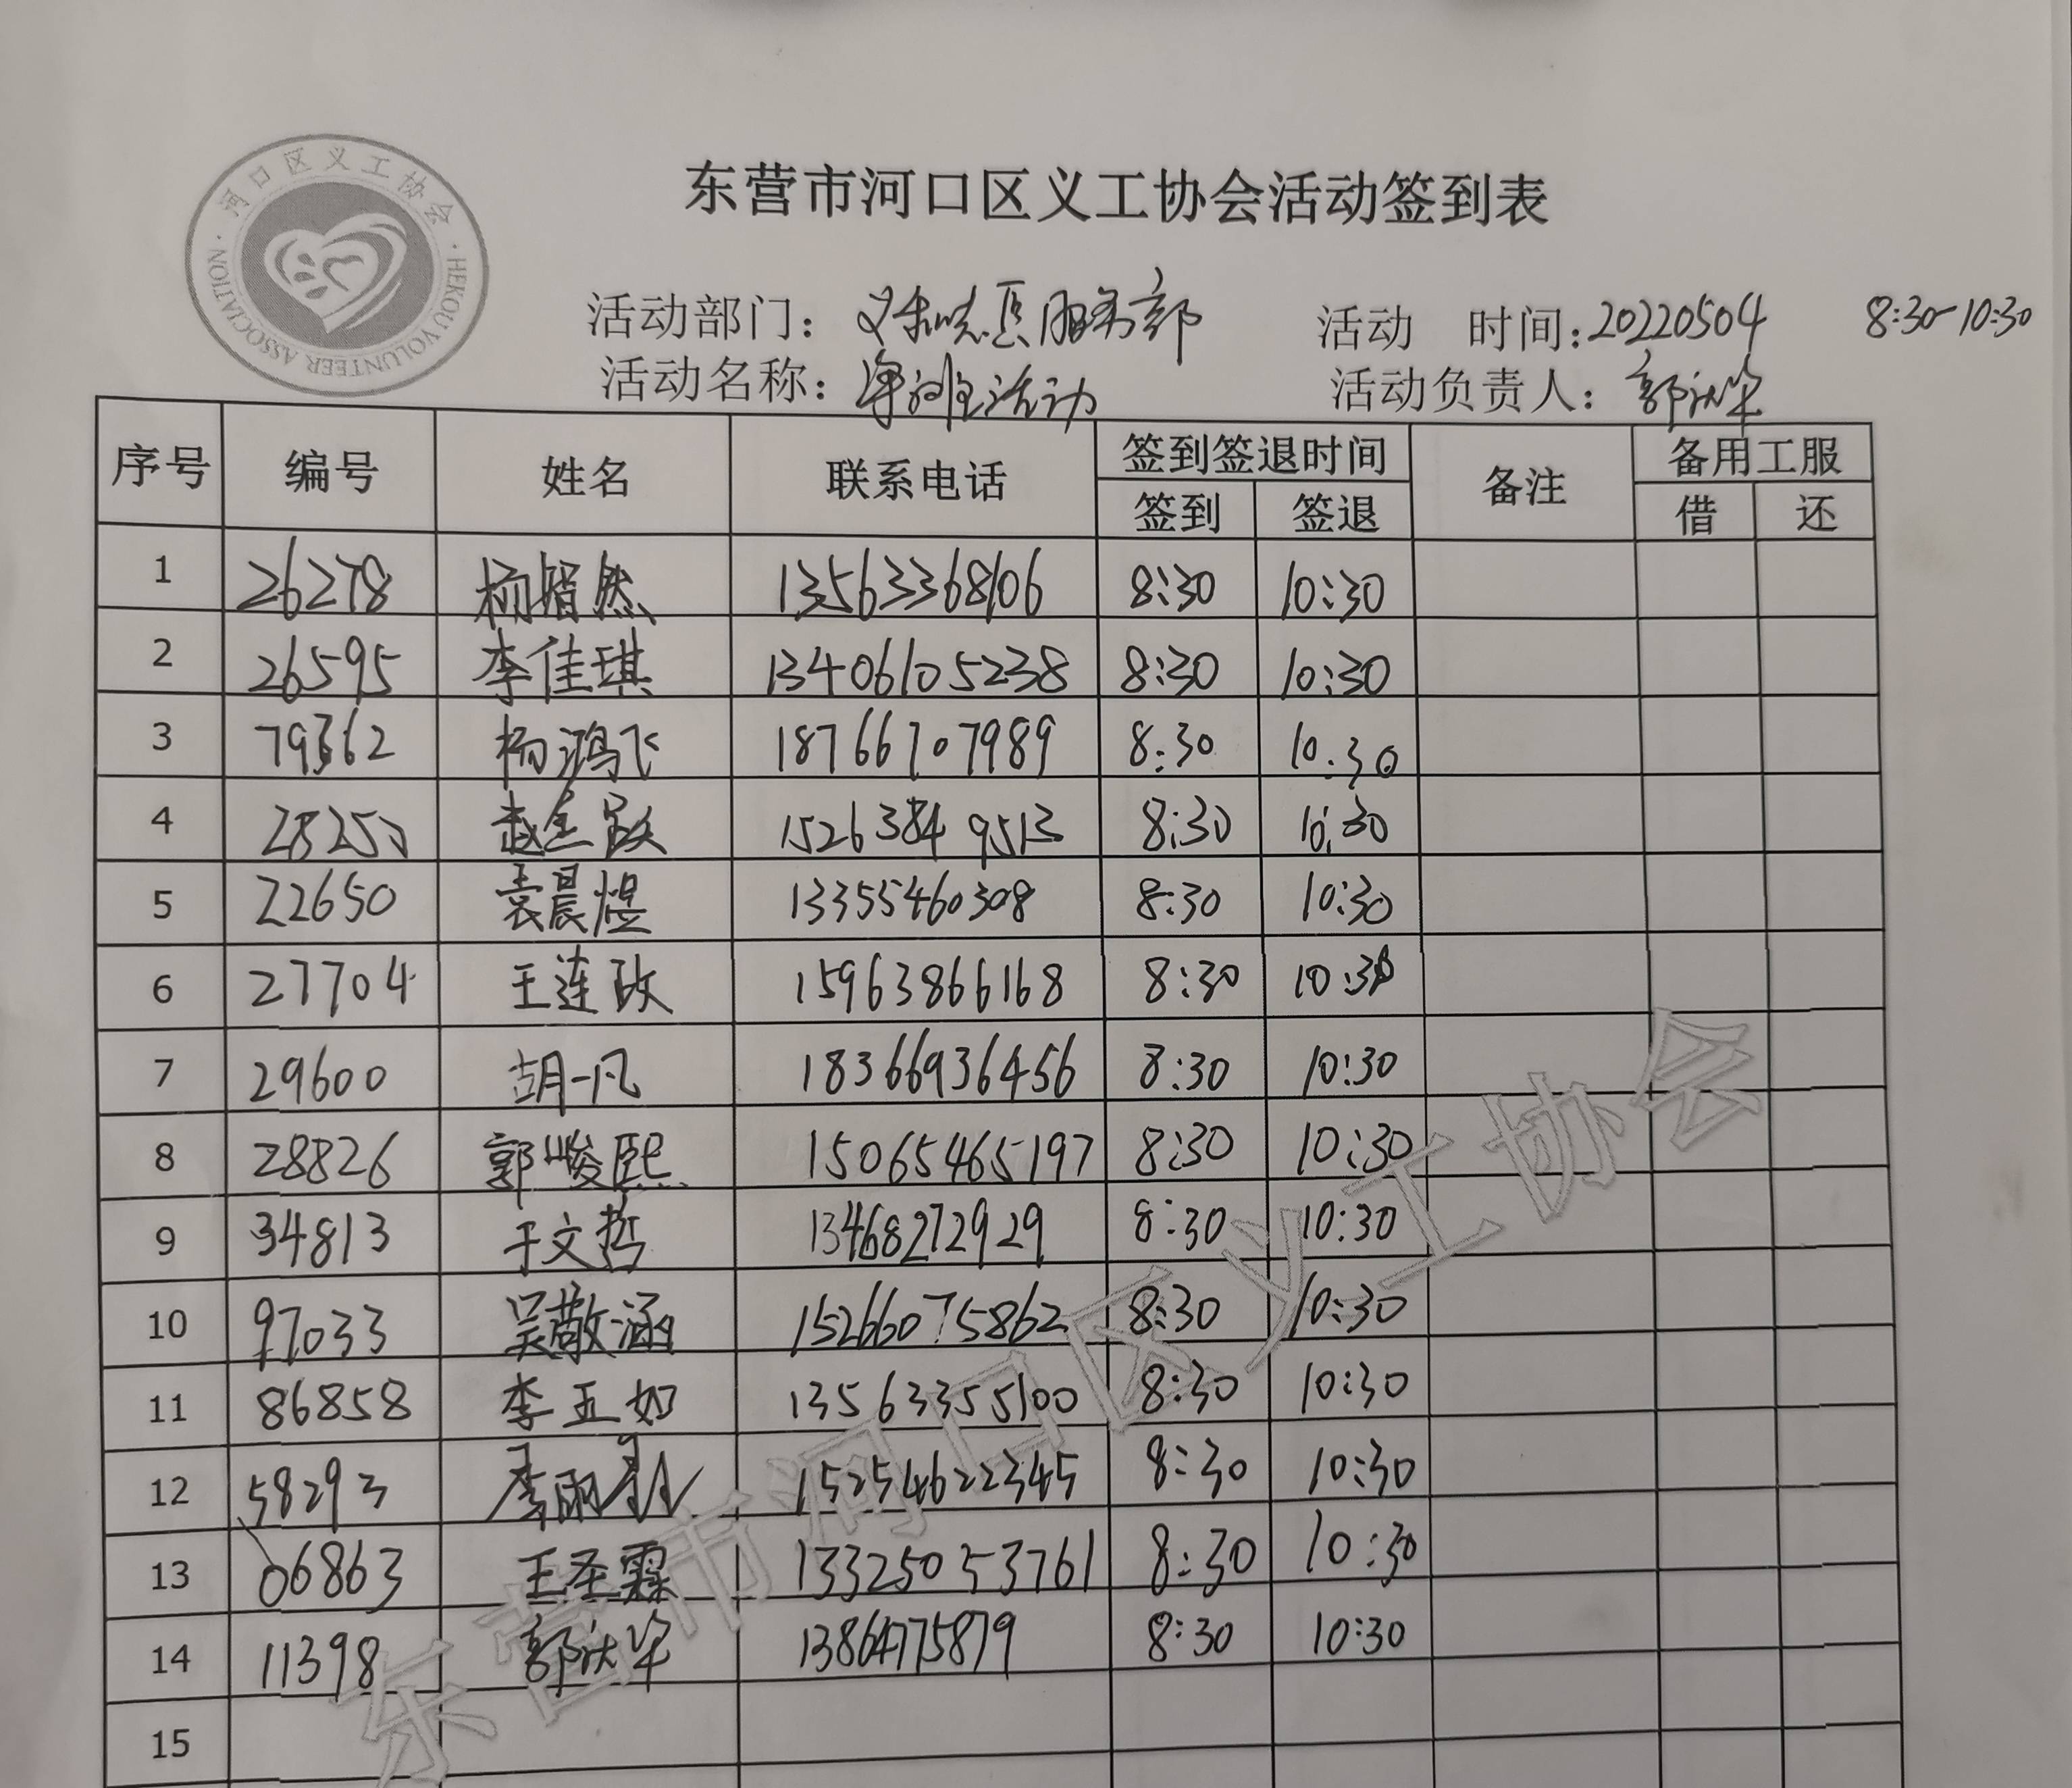 河口区义工协会
HEKOU VOLUNTEER ASSOCIATION
东营市河口区义工协会活动签到表
活动部门： 义和志愿服务部 活动 时间：20220504 8:30-10:30
活动名称： 活动 活动负责人：郭
序号 编号 姓名 联系电话 签到签退时间 备注 备用工服
签到 签退 借 还
1 26278 杨 然 13563368106 8:30 10:30
2 26595 李佳琪 13406105238 8:30 10:30
3 79362 杨鸿飞 18766707989 8:30 10:30
4 赵 15263849513 8:30 10:30
5 22650 袁晨煜 13355460308 8:30 10:30
6 27704 王连政 15963866168 8:30 10:30
7 29600 胡一凡 18366936456 8:30 10:30
8 28826 郭峻熙 15065465197 8:30 10:30
9 34813 于文哲 13468272929 8:30 10:30
10 97033 吴敬涵 15266075862 8:30 10:30
11 86858 李五如 13563355100 8:30 10:30
12 58293 李丽 15254622345 8:30 10:30
13 06863 王圣霖 13325053761 8:30 10:30
14 11398 郭 13864775879 8:30 10:30
15
东营市河口区义工协会